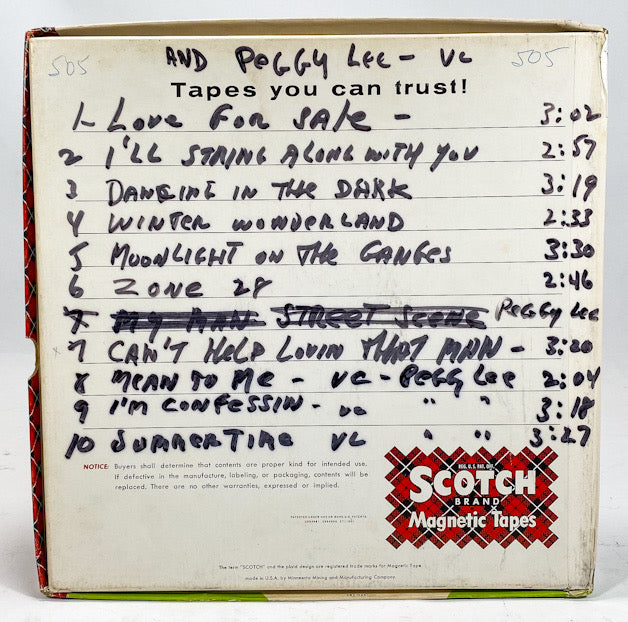 505 AND PEGGY LEE - VC 505
Tapes you can trust!
1- LOVE FOR SALE - 3:02
2 I'LL STRING ALONG WITH YOU 2:57
3 DANCING IN THE DARK 3:19
4 WINTER WONDERLAND 2:33
5 MOONLIGHT ON THE GANGES 3:30
6 ZONE 28 2:46
7 MY MAN STREET SCENE PEGGY LEE
x 7 CAN'T HELP LOVIN THAT MAN - 3:20
8 MEAN TO ME - VC - PEGGY LEE 2:04
9 I'M CONFESSIN - VC " " 3:18
10 SUMMERTIME VC " " 3:27
NOTICE: Buyers shall determine that contents are proper kind for intended use.
If defective in the manufacture, labeling, or packaging, contents will be
replaced. There are no other warranties, expressed or implied.
REG. U.S. PAT. OFF.
SCOTCH
BRAND
Magnetic Tapes
The term "SCOTCH" and the plaid design are registered trade marks for Magnetic Tape
made in U.S.A. by Minnesota Mining and Manufacturing Company.